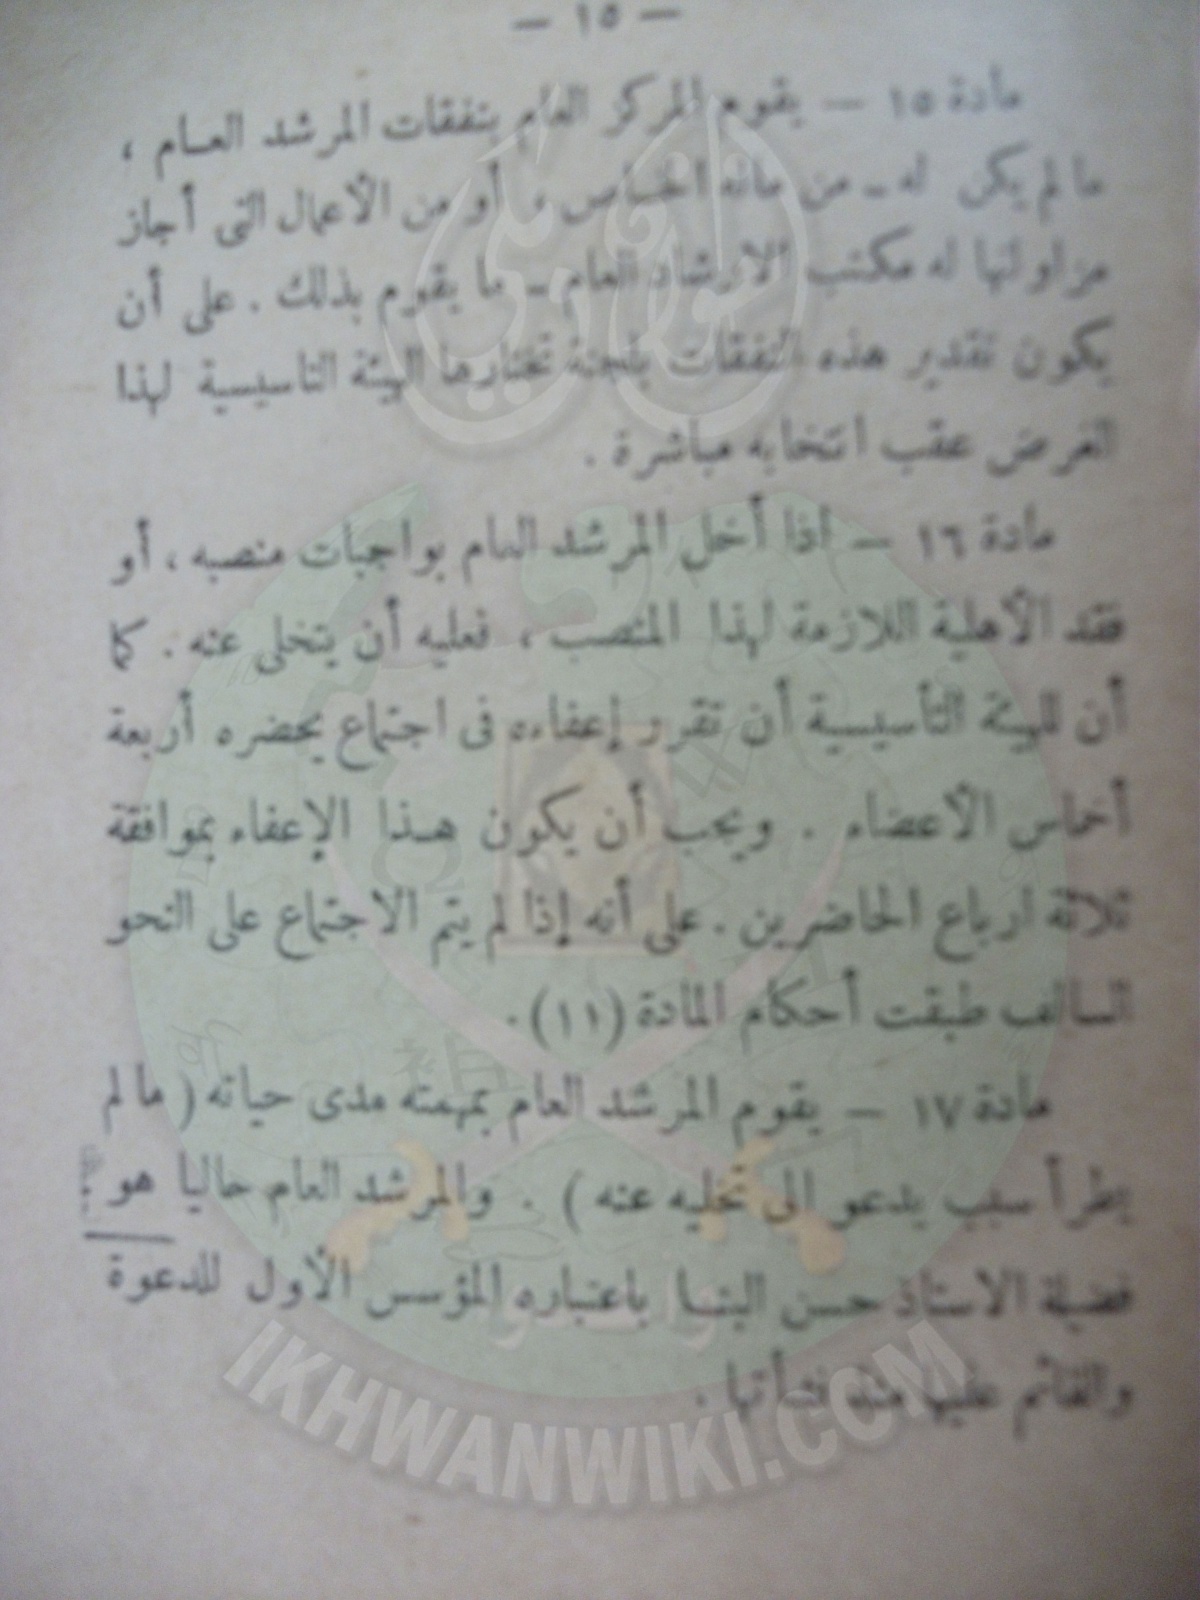 — ١٥ —
مادة ١٥ — يقوم المركز العام بنفقات المرشد العـام ،
ما لم يكن له ـ من ماله الخـاص ، أو من الأعمال التى أجاز
مزاولتها له مكتب الارشاد العام ـ ما يقوم بذلك . على أن
يكون تقدير هذه النفقات بلجنة تختارها الهيئة التأسيسية لهذا
الغرض عقب انتخابه مباشرة .
مادة ١٦ — اذا أخل المرشد العام بواجبات منصبه ، أو
فقد الأهلية اللازمة لهذا المنصب ، فعليه أن يتخلى عنه . كما
أن للهيئة التأسيسية أن تقرر إعفاءه فى اجتماع يحضره أربعة
أخماس الأعضاء . ويجب أن يكون هـذا الإعفاء بموافقة
ثلاثة ارباع الحاضرين . على أنه إذا لم يتم الاجتماع على النحو
السالف طبقت أحكام المادة (١١) .
مادة ١٧ — يقوم المرشد العام بمهمته مدى حياته ( ما لم
يطرأ سبب يدعو الى تخليه عنه ) . والمرشد العام حاليا هو
فضيلة الاستاذ حسن البنـا باعتباره المؤسس الأول للدعوة
والقائم عليها منذ نشأتها .
IKHWANWIKI.COM